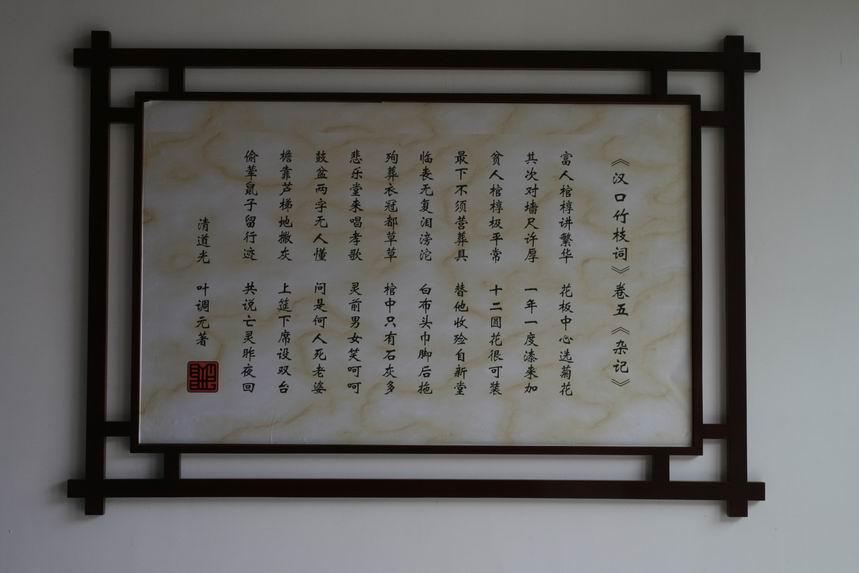 《汉口竹枝词》卷五《杂记》
富人棺椁讲繁华 花板中心选菊花
其次对墙尺许厚 一年一度漆来加
贫人棺椁极平常 十二圆花很可装
最下不须营葬具 替他收殓自新堂
临丧无复泪滂沱 白布头巾脚后拖
殉葬衣冠都草草 棺中只有石灰多
悲乐堂来唱孝歌 灵前男女笑呵呵
鼓盆两字无人懂 问是何人死老婆
檐靠芦梯地撒灰 上筵下席设双台
偷荤鼠子留行迹 共说亡灵昨夜回
清道光 叶调元著